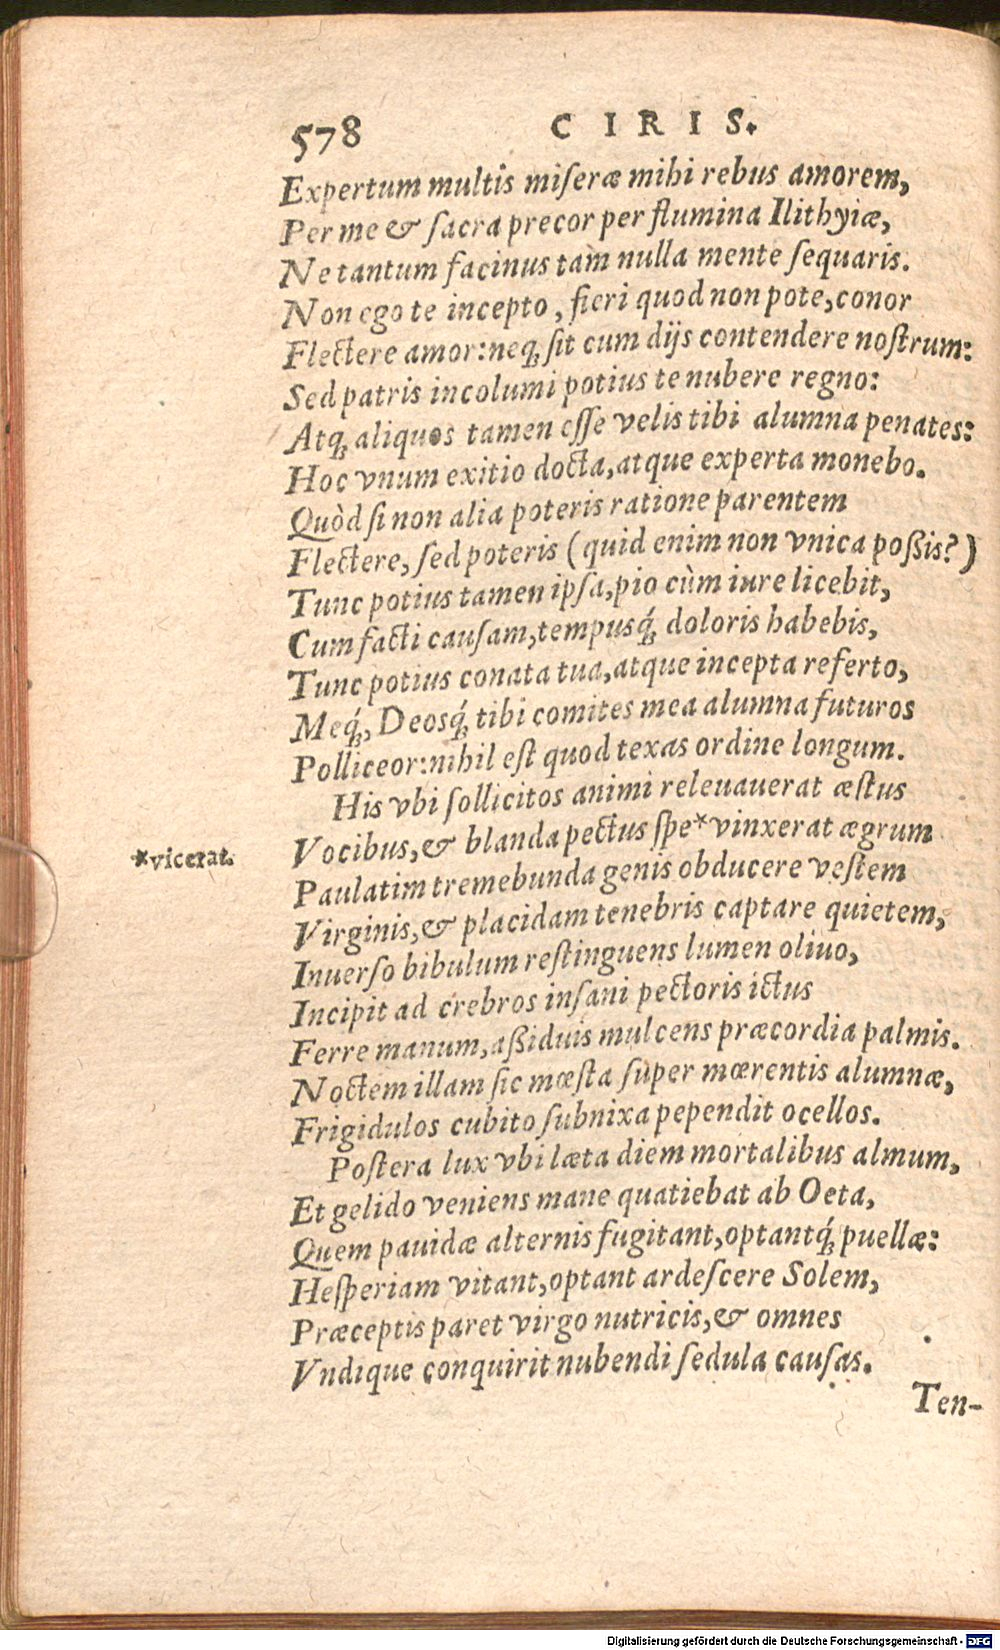 578 CIRIS.
Expertum multis miſeræ mihi rebus amorem,
Per me & ſacra precor per flumina Ilithyiæ,
Ne tantum facinus tam nulla mente ſequaris.
Non ego te incepto, fieri quod non pote, conor
Flectere amor: neq; ſit cum dijs contendere noſtrum:
Sed patris incolumi potius te nubere regno:
Atq; aliquos tamen eſſe velis tibi alumna penates:
Hoc vnum exitio docta, atque experta monebo.
Quòd ſi non alia poteris ratione parentem
Flectere, ſed poteris (quid enim non vnica poßis?)
Tunc potius tamen ipſa, pio cùm iure licebit,
Cum facti cauſam, tempusq́; doloris habebis,
Tunc potius conata tua, atque incepta referto,
Meq́;, Deosq́; tibi comites mea alumna futuros
Polliceor: nihil eſt quod texas ordine longum.
His vbi ſollicitos animi releuauerat æſtus
Vocibus, & blanda pectus ſpe* vinxerat ægrum
*vicerat.
Paulatim tremebunda genis obducere veſtem
Virginis, & placidam tenebris captare quietem,
Inuerſo bibulum reſtinguens lumen oliuo,
Incipit ad crebros inſani pectoris ictus
Ferre manum, aßiduis mulcens præcordia palmis.
Noctem illam ſic mæſta ſuper mœrentis alumnæ,
Frigidulos cubito ſubnixa pependit ocellos.
Poſtera lux vbi læta diem mortalibus almum,
Et gelido veniens mane quatiebat ab Oeta,
Quem pauidæ alternis fugitant, optantq́; puellæ:
Heſperiam vitant, optant ardeſcere Solem,
Præceptis paret virgo nutricis, & omnes
Vndique conquirit nubendi ſedula cauſas.
Ten-
Digitalisierung gefördert durch die Deutsche Forschungsgemeinschaft - DFG